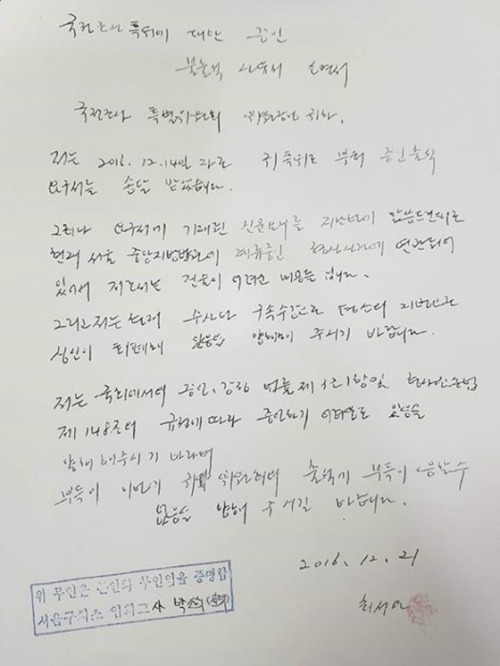 국정조사 특위에 대한 증인
불출석 사유서 소명서
국정조사 특별위원회 위원장님 귀하.
저는 2016.12.14일 자로 귀 특위로 부터 증인출석
요구서를 송달 받았습니다.
그러나 요구서에 기재된 신문요지를
현재 서울 중앙지방법원에 계류중인 형사사건에 연관되어
있어서 저로서는 진술이 어려운 내용들 입니다.
그리고 저는 현재 수사와 구속수감으로 평소의 지병으로
심신이 피폐해 있음을 양해하여 주시기 바랍니다.
저는 국회에서의 증언, 감정 법률 제3조1항 및 형사소송법
제148조의 규정에 따라 증언하기 어려움이 있음을
양해 하여주시기 바라며
부득이 이번 귀 위원회의 출석에 부득이 응할수
없음을 양해 주시길 바랍니다.
2016. 12. 21
최서원
위 무인은 본인의 무인임을 증명함
서울구치소 교